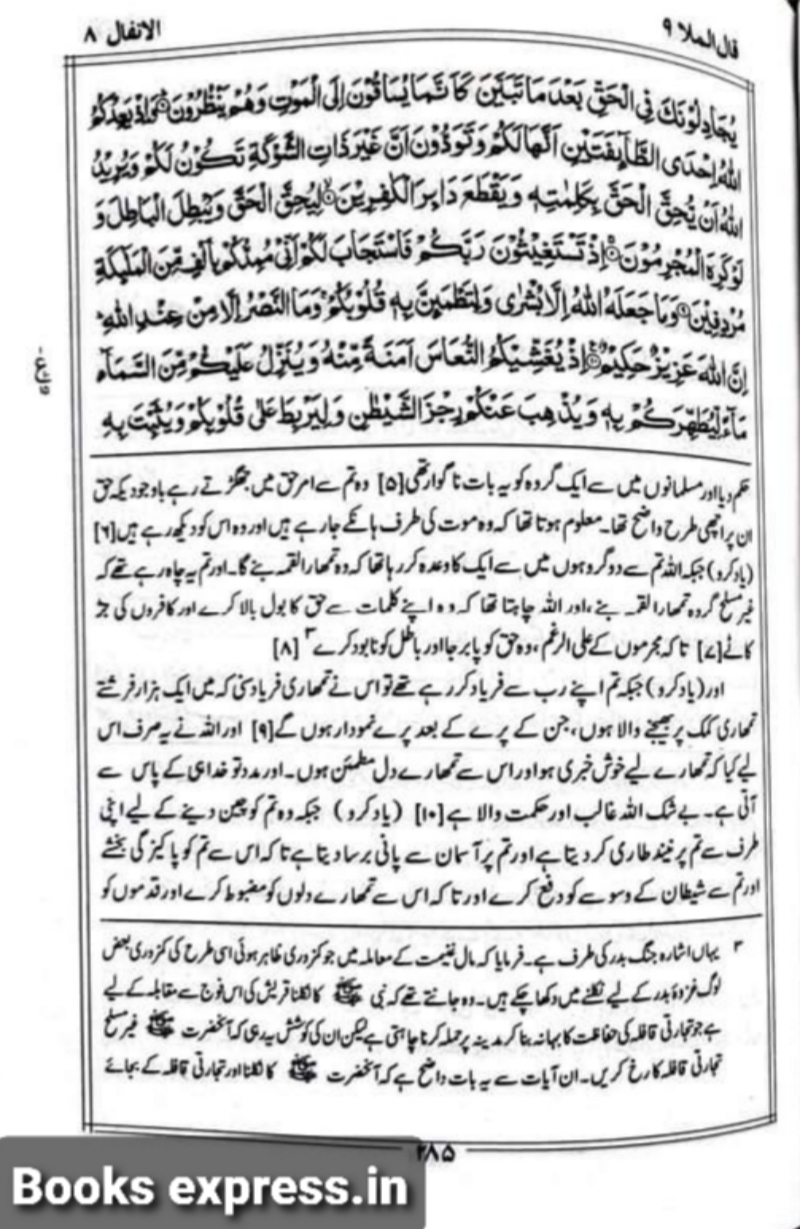 قال الملا ۹
الانفال ۸
يُجَادِلُوْنَكَ فِي الْحَقِّ بَعْدَ مَا تَبَيَّنَ كَاَنَّمَا يُسَاقُوْنَ اِلَى الْمَوْتِ وَهُمْ يَنْظُرُوْنَ۝ وَاِذْ يَعِدُكُمُ
اللّٰهُ اِحْدَى الطَّآئِفَتَيْنِ اَنَّهَا لَكُمْ وَتَوَدُّوْنَ اَنَّ غَيْرَ ذَاتِ الشَّوْكَةِ تَكُوْنُ لَكُمْ وَيُرِيْدُ
اللّٰهُ اَنْ يُّحِقَّ الْحَقَّ بِكَلِمٰتِهٖ وَيَقْطَعَ دَابِرَ الْكٰفِرِيْنَ۝ لِيُحِقَّ الْحَقَّ وَيُبْطِلَ الْبَاطِلَ وَ
لَوْ كَرِهَ الْمُجْرِمُوْنَ۝ اِذْ تَسْتَغِيْثُوْنَ رَبَّكُمْ فَاسْتَجَابَ لَكُمْ اَنِّيْ مُمِدُّكُمْ بِاَلْفٍ مِّنَ الْمَلٰٓئِكَةِ
مُرْدِفِيْنَ۝ وَمَا جَعَلَهُ اللّٰهُ اِلَّا بُشْرٰى وَلِتَطْمَئِنَّ بِهٖ قُلُوْبُكُمْ وَمَا النَّصْرُ اِلَّا مِنْ عِنْدِ اللّٰهِ
اِنَّ اللّٰهَ عَزِيْزٌ حَكِيْمٌ۝ اِذْ يُغَشِّيْكُمُ النُّعَاسَ اَمَنَةً مِّنْهُ وَيُنَزِّلُ عَلَيْكُمْ مِّنَ السَّمَآءِ
مَآءً لِّيُطَهِّرَكُمْ بِهٖ وَيُذْهِبَ عَنْكُمْ رِجْزَ الشَّيْطٰنِ وَلِيَرْبِطَ عَلٰى قُلُوْبِكُمْ وَيُثَبِّتَ بِهِ
حکم دیا اور مسلمانوں میں سے ایک گروہ کو یہ بات ناگوار تھی [۵] وہ تم سے امر حق میں جھگڑتے رہے باوجودیکہ حق
ان پر اچھی طرح واضح تھا۔ معلوم ہوتا تھا کہ وہ موت کی طرف ہانکے جا رہے ہیں اور وہ اس کو دیکھ رہے ہیں [۶]
(یاد کرو) جبکہ اللہ تم سے دو گروہوں میں سے ایک کا وعدہ کر رہا تھا کہ وہ تمھارا لقمہ بنے گا۔ اور تم یہ چاہ رہے تھے کہ
غیر مسلح گروہ تمھارا لقمہ بنے، اور اللہ چاہتا تھا کہ وہ اپنے کلمات سے حق کا بول بالا کرے اور کافروں کی جڑ
کاٹے [۷] تاکہ مجرموں کے علی الرغم، وہ حق کو پا برجا اور باطل کو نابود کرے ۳ [۸]
اور (یاد کرو) جبکہ تم اپنے رب سے فریاد کر رہے تھے تو اس نے تمھاری فریاد سنی کہ میں ایک ہزار فرشتے
تمھاری کمک پر بھیجنے والا ہوں، جن کے پرے کے بعد پرے نمودار ہوں گے [۹] اور اللہ نے یہ صرف اس
لیے کیا کہ تمھارے لیے خوش خبری ہو اور اس سے تمھارے دل مطمئن ہوں۔ اور مدد تو خدا ہی کے پاس سے
آتی ہے۔ بے شک اللہ غالب اور حکمت والا ہے [۱۰] (یاد کرو) جبکہ وہ تم کو چین دینے کے لیے اپنی
طرف سے تم پر نیند طاری کر دیتا ہے اور تم پر آسمان سے پانی برسا دیتا ہے تاکہ اس سے تم کو پاکیزگی بخشے
اور تم سے شیطان کے وسوسے کو دفع کرے اور تاکہ اس سے تمھارے دلوں کو مضبوط کرے اور قدموں کو
۳ یہاں اشارہ جنگ بدر کی طرف ہے۔ فرمایا کہ مال غنیمت کے معاملہ میں جو کمزوری ظاہر ہوئی اسی طرح کی کمزوری بعض
لوگ غزوۂ بدر کے لیے نکلنے میں دکھا چکے ہیں۔ وہ جانتے تھے کہ نبی ﷺ کا نکلنا قریش کی اس فوج سے مقابلہ کے لیے
ہے جو تجارتی قافلہ کی حفاظت کا بہانہ بنا کر مدینہ پر حملہ کرنا چاہتی ہے لیکن ان کی کوشش یہ رہی کہ آنحضرت ﷺ غیر مسلح
تجارتی قافلہ کا رخ کریں۔ ان آیات سے یہ بات واضح ہے کہ آنحضرت ﷺ کا نکلنا اور تجارتی قافلہ کے بجائے
۲۸۵
Books express.in